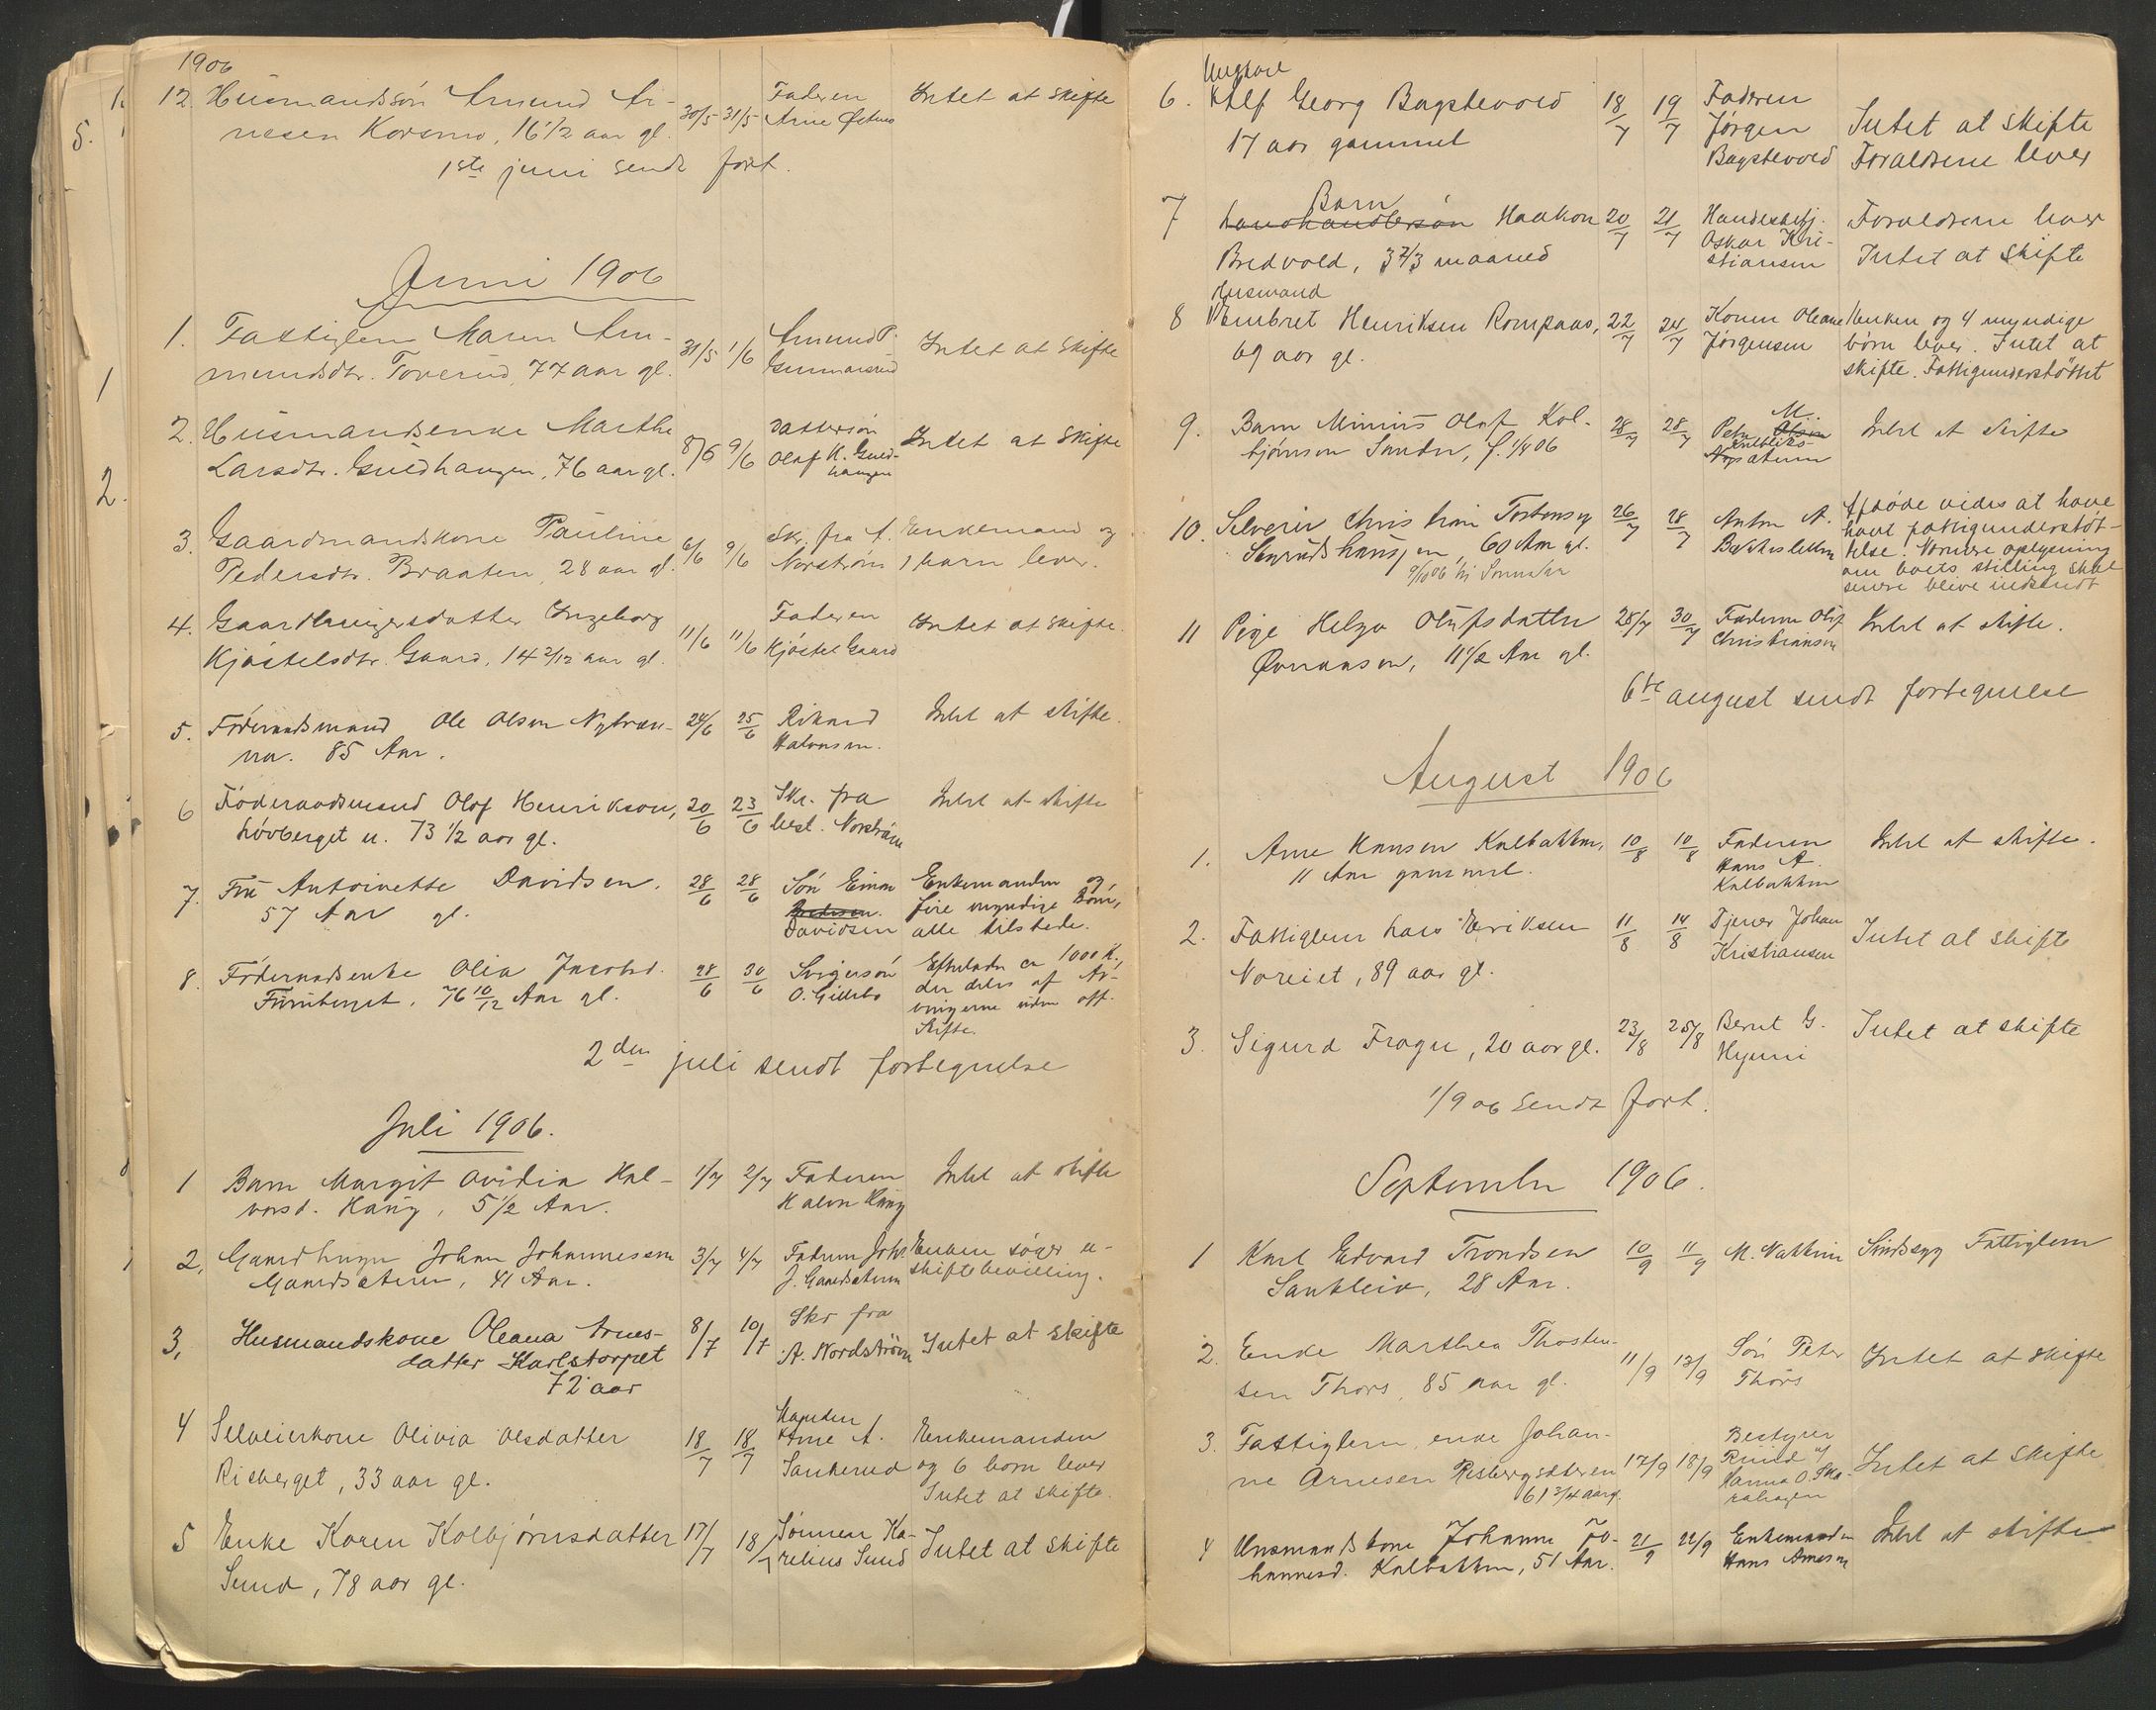 1906
12. Husmandssön Amund Ar- 30/5 31/5 Faderen Intet at skifte
nesen Korsmo, 16 1/2 aar gl. Arne
1ste juni sendt fort.
Juni 1906
1. Fattiglem Maren Am- 31/5 1/6 Amund P. Intet at skifte
mundsdtr. Toverud, 77 aar gl. Gunnarsrud
2. Husmandsenke Marthe 8/6 9/6 Dattersön Intet at skifte
Larsdtr. Guldhaugen, 76 aar gl. Olaf K. Guld-
haugen
3. Gaardmandskone Pauline 6/6 9/6 Skr. fra A. Enkemand og
Pedersdtr. Braaten, 28 aar gl. Norström 1 barn lever.
4. Gaardbrugersdatter Ingeborg 11/6 11/6 Faderen Intet at skifte.
Kjöstelsdtr. Gaard, 14 2/12 aar gl. Kjöstel Gaard
5. Föderaadsmand Ole Olsen Nybraa- 24/6 25/6 Rikard Intet at skifte.
Halvorsen.
85 Aar.
6 Föderaadsmand Olof Henriksen, 20/6 23/6 Skr. fra Intet at skifte
Lövberget n. 73 1/2 aar gl. Norström
7. Fru Antoinette Davidsen. 28/6 28/6 Sön Einar Enkemanden og
57 Aar gl. Davidsen fire myndige Börn,
alle tilstede.
8. Föderaadsenke Olia Jacobsd. 28/6 30/6 Svigersön Efterlader ca 1000 K.,
Furuberget. 76 10/12 Aar gl. O. Gillebo der deles af Ar-
vingerne uden off.
Skifte.
2den juli sendt fortegnelse
Juli 1906.
1 Barn Margit Ovidia Hal- 1/7 2/7 Faderen Intet at skifte
vorsd. Haug, 5 1/2 Aar. Halvor Haug
2, Gaardbruger Johan Johannessen 3/7 4/7 Faderen Johs. Enken söger u-
Gaardsäteren, 41 Aar. J. Gaardsäteren skiftebevilling.
3, Husmandskone Oleana Arnes- 8/7 10/7 Skr fra
datter Karlstorpet A. Nordström Intet at skifte
72 aar
4 Selveierkone Olivia Olsdatter 18/7 18/7 Manden Enkemanden
Risberget, 33 aar gl. Arne A. og 6 born lever
Sankerud Intet at skifte.
5 Enke Karen Kolbjørnsdatter 17/7 18/7 Sønnen Ka- Intet at skifte
Sund, 78 aar gl. relius Sund
Ungkarl
6. Alf Georg Bagstevold 18/7 19/7 Faderen
17 aar gammel Jørgen Intet at skifte
Bagstevold Foraldrene lever
Barn
7 Landhandlersøn Haakon 20/7 21/7 Handelsbetj. Foraldrene lever
Bredvold, 3 2/3 maaned Oskar Kri- Intet at skifte
stiansen
Husmand
8 Embret Henriksen Rompaas, 22/7 24/7 Konen Oleane Enken og 4 myndige
69 aar gl. Jørgensen børn lever. Intet at
skifte. Fattigunderstöttet
9. Barn Minius Olaf Kol- 28/7 28/7 Peder M. Olsen Intet at skifte
bjørnson Sander, f. 1/4 06
10. Selveier Christian Torstensen 26/7 28/7 Anton A. Afdöde vides at have
Sagrudshaugen, 60 Aar gl. Bakkesletten havt fattigunderstöt-
telse. Nærmere oplysning
om boets stilling skal
senere blive indsendt
11 Pige Helga Olufsdatter 28/7 30/7 Faderen Oluf Intet at skifte.
11 1/2 Aar gl. Christiansen
6te august sendt fortegnelse
August 1906
1. Arne Hansen Kalbakken, 10/8 10/8 Faderen Intet at skifte.
11 Aar gammel. Hans A.
Kalbakken
2. Fattiglem Lars Eriksen 11/8 14/8 Tjener Johan Intet at skifte
Noreiet, 89 aar gl. Kristiansen
3. Sigurd Fragu, 20 aar gl. 23/8 25/8 Bernt G. Intet at skifte
1/9 06 sendt fort.
September 1906.
1 Karl Edvard Trondsen 10/9 11/9 M. Nakken Sindssyg Fattiglem
Sankleiv, 28 Aar.
2. Enke Marthea Thosten- 11/9 13/9 Sön Peter Intet at skifte
sen Thors, 85 aar gl. Thors
3. Fattiglem enke Johan- 17/9 18/9 Bestyrer Intet at skifte
ne Arnesen Risbergsæteren
61 3/4 aar g. Hanna O. Ska-
4 Husmandskone Johanne Jo- 21/9 22/9 Enkemanden Intet at skifte
hannesd. Kalbakken, 51 Aar. Hans Arnesen